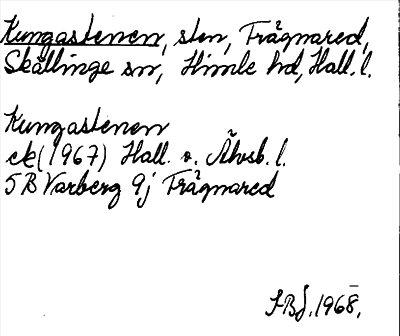 Kungastenen, sten, Frågnared,
Skällinge sn, Himle hd, Hall. l.
Kungastenen
ek (1967) Hall. o. Älvsb. l.
5B Varberg 9j Frågnared
S-BJ. 1968.